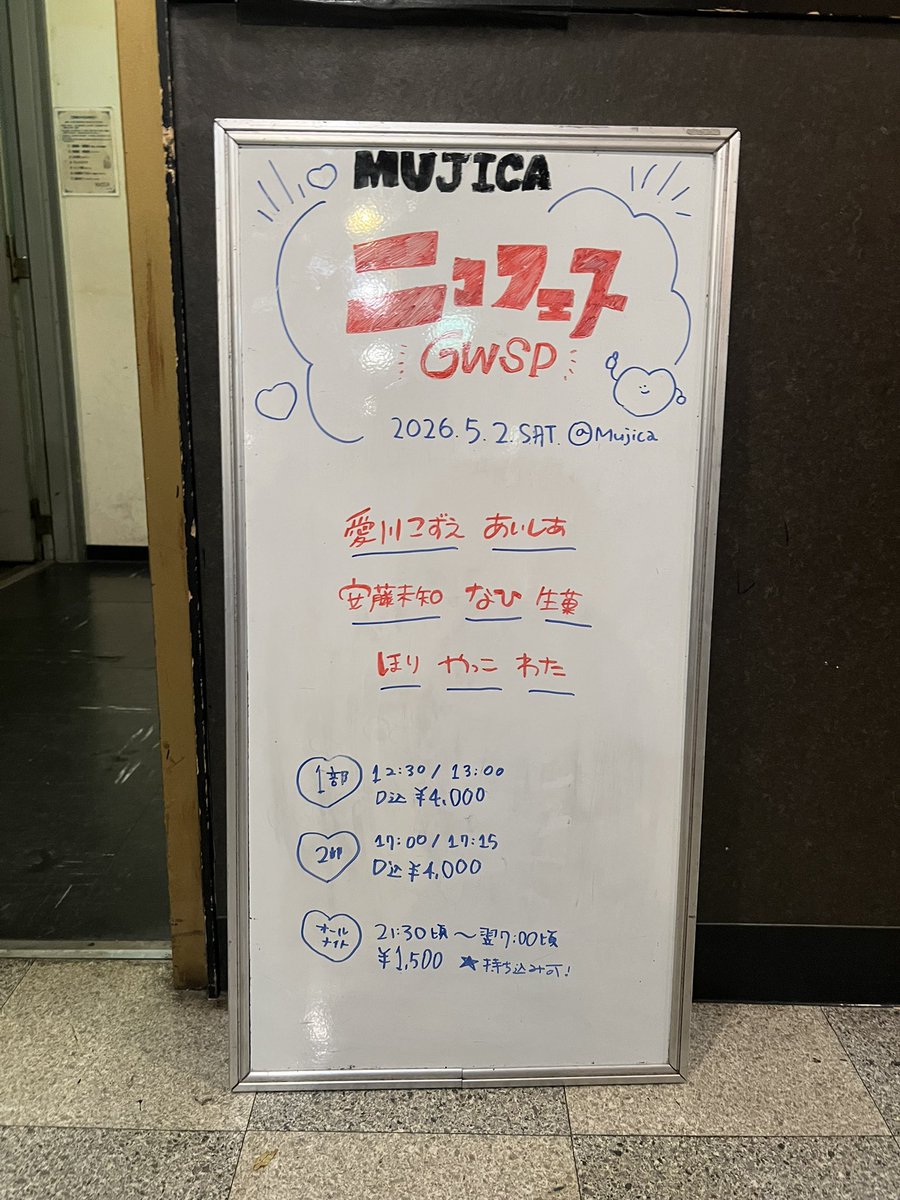 MUJICA
ニコフェス
GWSP
2026.5.2.SAT. @Mujica
愛川こずえ あいしあ
安藤未知 なひ 生菓
ほり やっこ わた
1部 12:30 / 13:00
D込 ¥4,000
2部 17:00 / 17:15
D込 ¥4,000
オールナイト 21:30頃～翌7:00頃
¥1,500 ★持ち込み可!